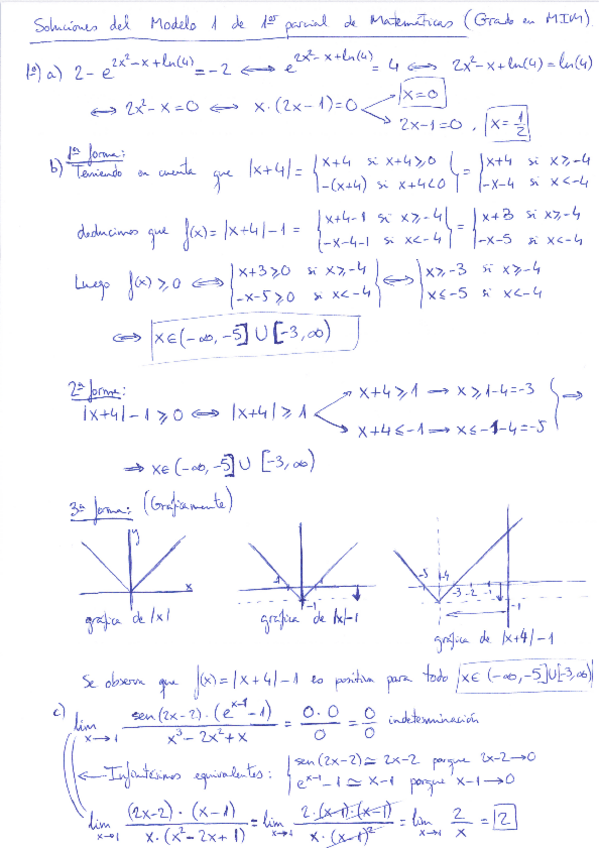 Soluciones del Modelo 1 de 1er parcial de Matemáticas (Grado en MIM).
1º) a) 2 - e^{2x²-x+ln(4)} = -2 ⟺ e^{2x²-x+ln(4)} = 4 ⟺ 2x²-x+ln(4) = ln(4)
⟺ 2x²-x=0 ⟺ x·(2x-1)=0 → x=0
→ 2x-1=0, x=1/2
1ª forma:
b) Teniendo en cuenta que |x+4| = { x+4 si x+4≥0, -(x+4) si x+4<0 } = { x+4 si x≥-4, -x-4 si x<-4
deducimos que f(x)=|x+4|-1 = { x+4-1 si x≥-4, -x-4-1 si x<-4 } = { x+3 si x≥-4, -x-5 si x<-4
Luego f(x)≥0 ⟺ { x+3≥0 si x≥-4, -x-5≥0 si x<-4 } ⟺ { x≥-3 si x≥-4, x≤-5 si x<-4
⟺ x∈(-∞,-5]∪[-3,∞)
2ª forma:
|x+4|-1≥0 ⟺ |x+4|≥1 → x+4≥1 → x≥1-4=-3
→ x+4≤-1 → x≤-1-4=-5 } ⇒
⇒ x∈(-∞,-5]∪[-3,∞)
3ª forma: (Gráficamente)
y
x
-1
1
-1
-5 -4 -3 -2 -1
-1
gráfica de |x|
gráfica de |x|-1
gráfica de |x+4|-1
Se observa que f(x)=|x+4|-1 es positiva para todo x∈(-∞,-5]∪[-3,∞)
c) lim x→1 sen(2x-2)·(e^{x-1}-1) / x³-2x²+x = 0·0/0 = 0/0 indeterminación
← Infinitésimos equivalentes: { sen(2x-2)≃2x-2 porque 2x-2→0
e^{x-1}-1≃x-1 porque x-1→0
lim x→1 (2x-2)·(x-1) / x·(x²-2x+1) = lim x→1 2·(x-1)·(x-1) / x·(x-1)² = lim x→1 2/x = 2